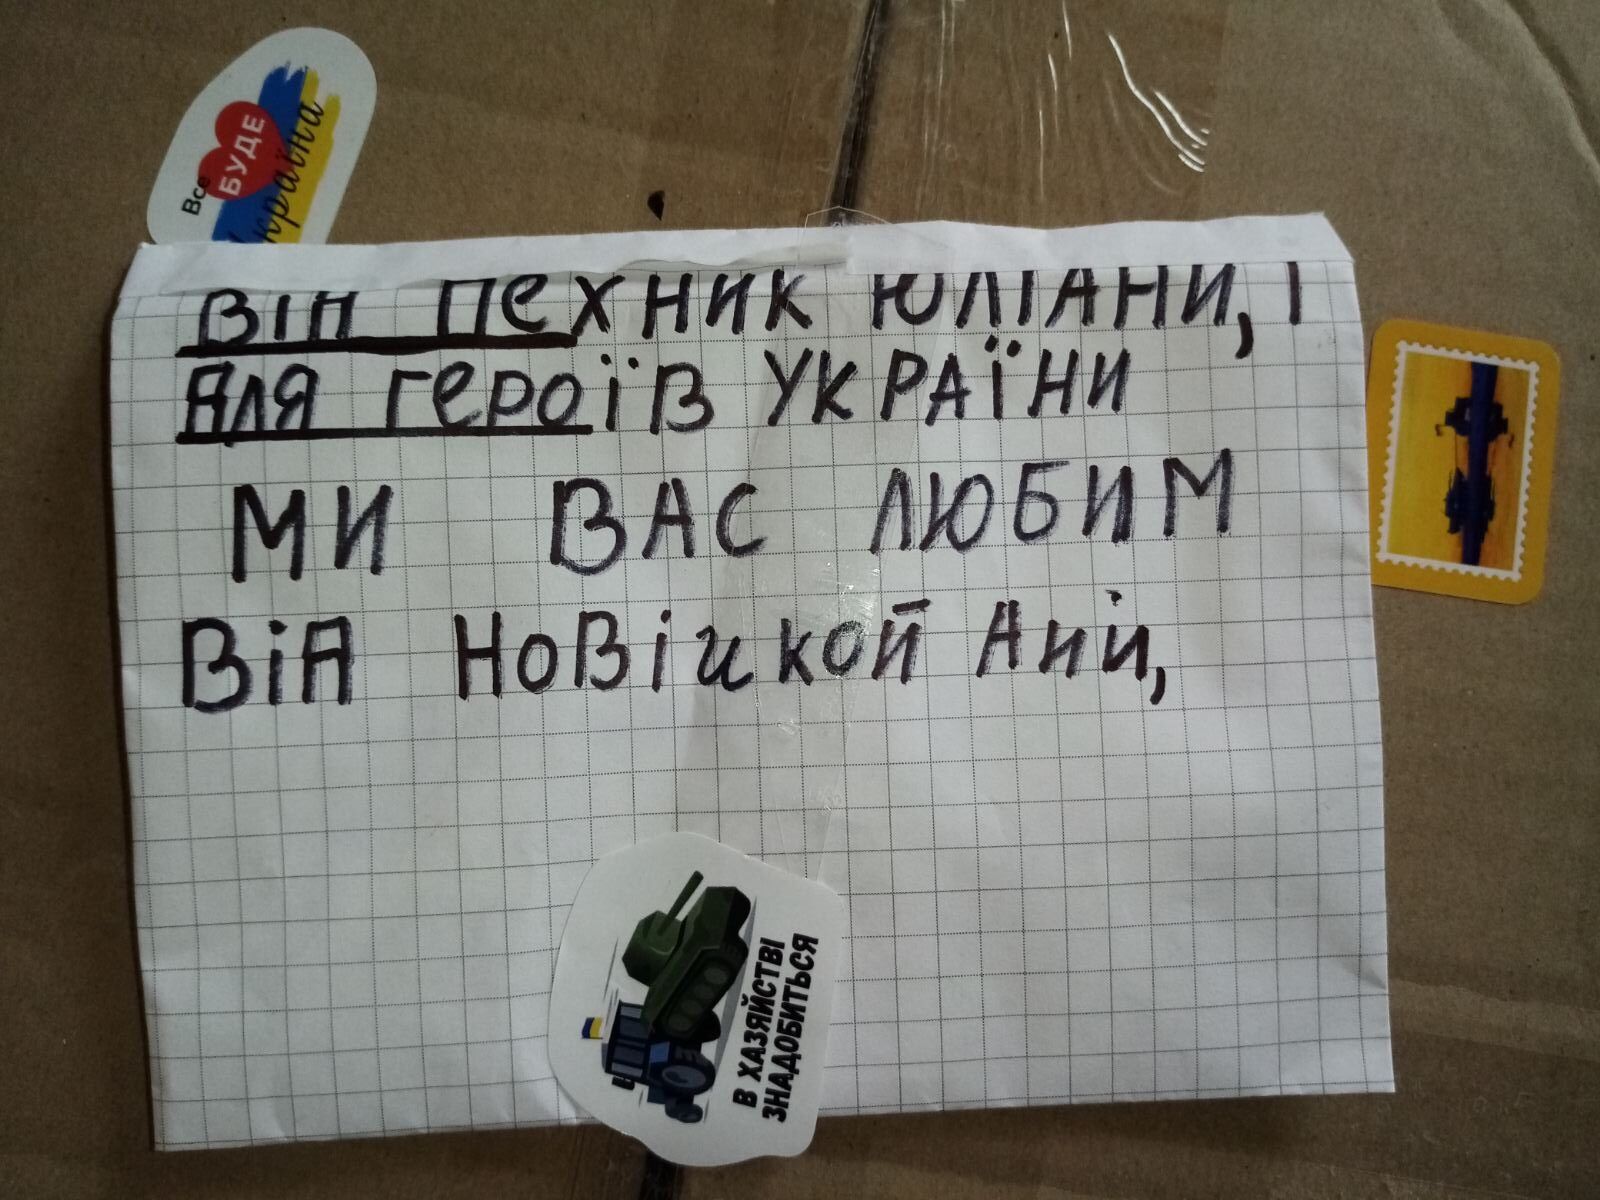 Все
БУДЕ
Україна
ВІД ПЕХНИК ЮЛІАНИ, І
ДЛЯ ГЕРОЇВ УКРАЇНИ
МИ ВАС ЛЮБИМ
ВІД НОВІЦКОЙ АНІ,
В ХАЗЯЙСТВІ
ЗНАДОБИТЬСЯ